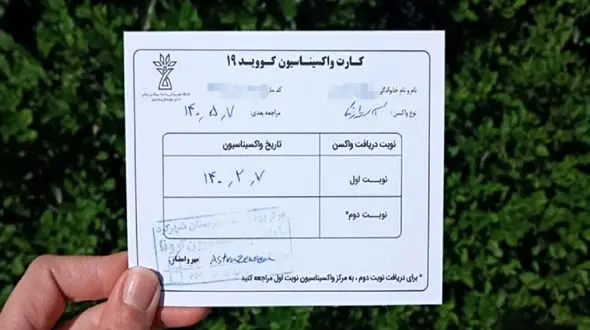 کارت واکسیناسیون کووید ۱۹
نام و نام خانوادگی: کد ملی:
نوع واکسن: مراجعه بعدی: ۱۴۰۰٫۵٫۷
نوبت دریافت واکسن تاریخ واکسیناسیون
نوبت اول ۱۴۰۰٫۲٫۷
نوبت دوم*
مهر و امضای AstraZeneca
* برای دریافت نوبت دوم ، به مرکز واکسیناسیون نوبت اول مراجعه کنید